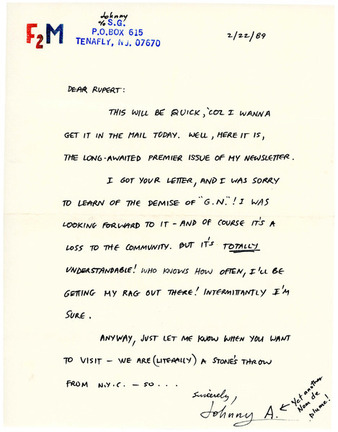 F2M
Johnny
℅ S.G.
P.O. BOX 615
TENAFLY, NJ. 07670
2/22/89
DEAR RUPERT:
THIS WILL BE QUICK, 'COZ I WANNA
GET IT IN THE MAIL TODAY. WELL, HERE IT IS,
THE LONG-AWAITED PREMIER ISSUE OF MY NEWSLETTER.
I GOT YOUR LETTER, AND I WAS SORRY
TO LEARN OF THE DEMISE OF "G.N."! I WAS
LOOKING FORWARD TO IT - AND OF COURSE IT'S A
LOSS TO THE COMMUNITY. BUT IT'S TOTALLY
UNDERSTANDABLE! WHO KNOWS HOW OFTEN, I'LL BE
GETTING MY RAG OUT THERE! INTERMITTANTLY I'M
SURE.
ANYWAY, JUST LET ME KNOW WHEN YOU WANT
TO VISIT - WE ARE (LITERALLY) A STONE'S THROW
FROM N.Y.C. - SO...
Sincerely,
Johnny A. ← Yet another
Nom de
plume!